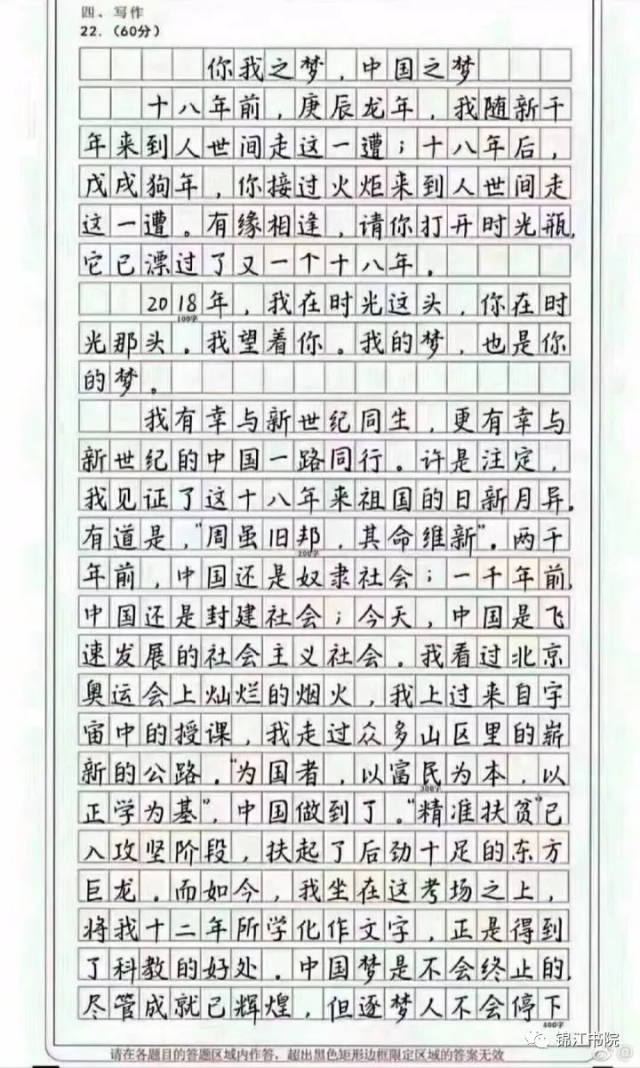 四、写作
22.（60分）
你我之梦，中国之梦
十八年前，庚辰龙年，我随新千
年来到人世间走这一遭；十八年后，
戊戌狗年，你接过火炬来到人世间走
这一遭。有缘相逢，请你打开时光瓶，
它已漂过了又一个十八年。
2018年，我在时光这头，你在时
100字
光那头。我望着你。我的梦，也是你
的梦。
我有幸与新世纪同生，更有幸与
新世纪的中国一路同行。许是注定，
我见证了这十八年来祖国的日新月异。
有道是，“周虽旧邦，其命维新”。两千
200字
年前，中国还是奴隶社会；一千年前，
中国还是封建社会；今天，中国是飞
速发展的社会主义社会。我看过北京
奥运会上灿烂的烟火，我上过来自宇
宙中的授课，我走过众多山区里的崭
新的公路。“为国者，以富民为本，以
300字
正学为基”，中国做到了。“精准扶贫”已
入攻坚阶段，扶起了后劲十足的东方
巨龙。而如今，我坐在这考场之上，
将我十二年所学化作文字，正是得到
了科教的好处。中国梦是不会终止的，
尽管成就已辉煌，但逐梦人不会停下
400字
请在各题目的答题区域内作答，超出黑色矩形边框限定区域的答案无效
锦江书院